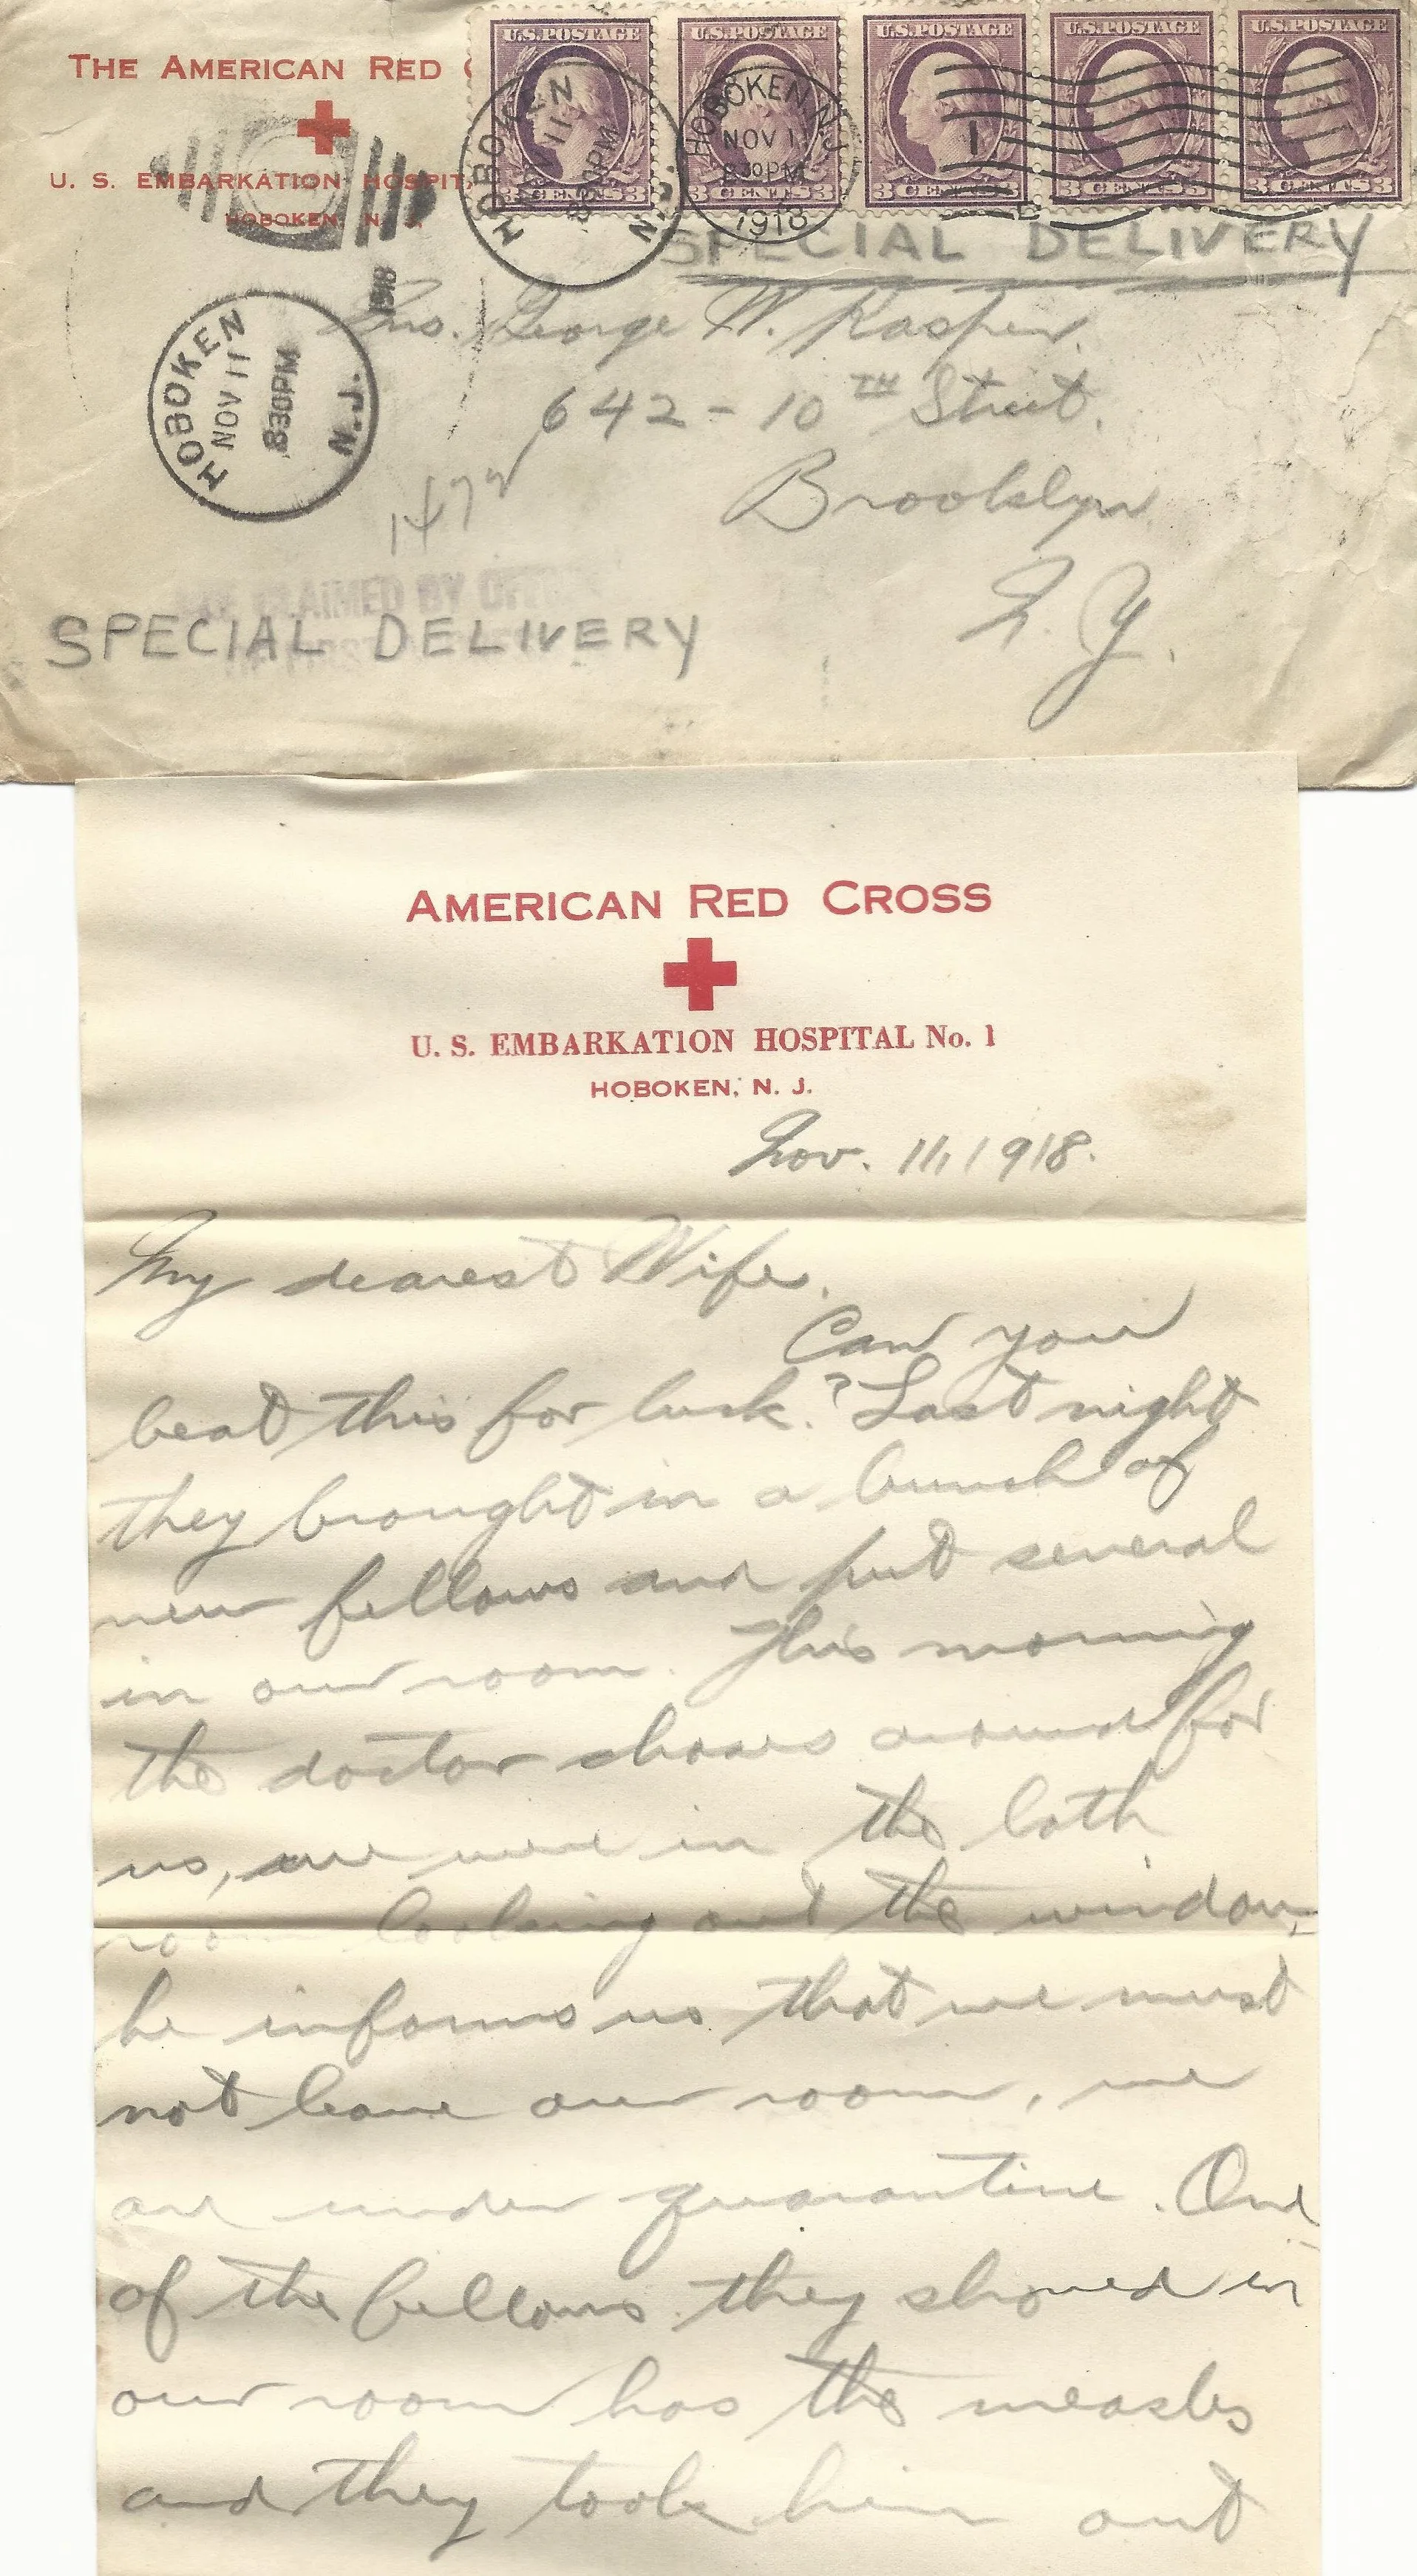 THE AMERICAN RED
U. S. EMBARKATION HOSPIT
HOBOKEN, N. J.
U.S.POSTAGE U.S.POSTAGE U.S.POSTAGE U.S.POSTAGE U.S.POSTAGE
3 CENTS 3 3 CENTS 3 3 CENTS 3 3 CENTS 3 3 CENTS 3
HOBOKEN N.J.
NOV 11
830PM
HOBOKEN N.J.
NOV 11
830PM
1918
HOBOKEN N.J.
NOV 11
830PM
1918
SPECIAL DELIVERY
Mrs. George W. Kasper.
642 - 10TH Street.
Brooklyn
N. Y.
CLAIMED BY
SPECIAL DELIVERY
AMERICAN RED CROSS
U. S. EMBARKATION HOSPITAL No. 1
HOBOKEN, N. J.
Nov. 11, 1918.
My dearest Wife,
Can you
beat this for luck.? Last night
they brought in a bunch of
new fellows and put several
in our room. This morning
the doctor chases around for
us, we were in the bath
room looking out the window,
he informs us that we must
not leave our room, we
are under quarantine. One
of the fellows they shoved in
our room has the measles
and they took him out